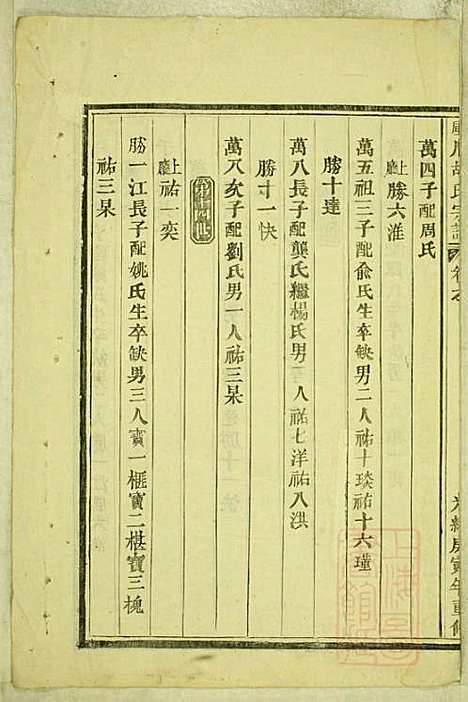 胡氏宗譜
光緒庚寅年重修
萬四子配周氏
上廳 勝六淮
萬五祖三子配俞氏生卒缺男二人祐十琰祐十六瑾
勝十達
萬八長子配龔氏繼楊氏男二人祐七洋祐八洪
勝十一快
萬八次子配劉氏男一人祐三杲
上廳 祐一奕
勝一江長子配姚氏生卒缺男三人寶一榧寶二椹寶三槐
祐三杲